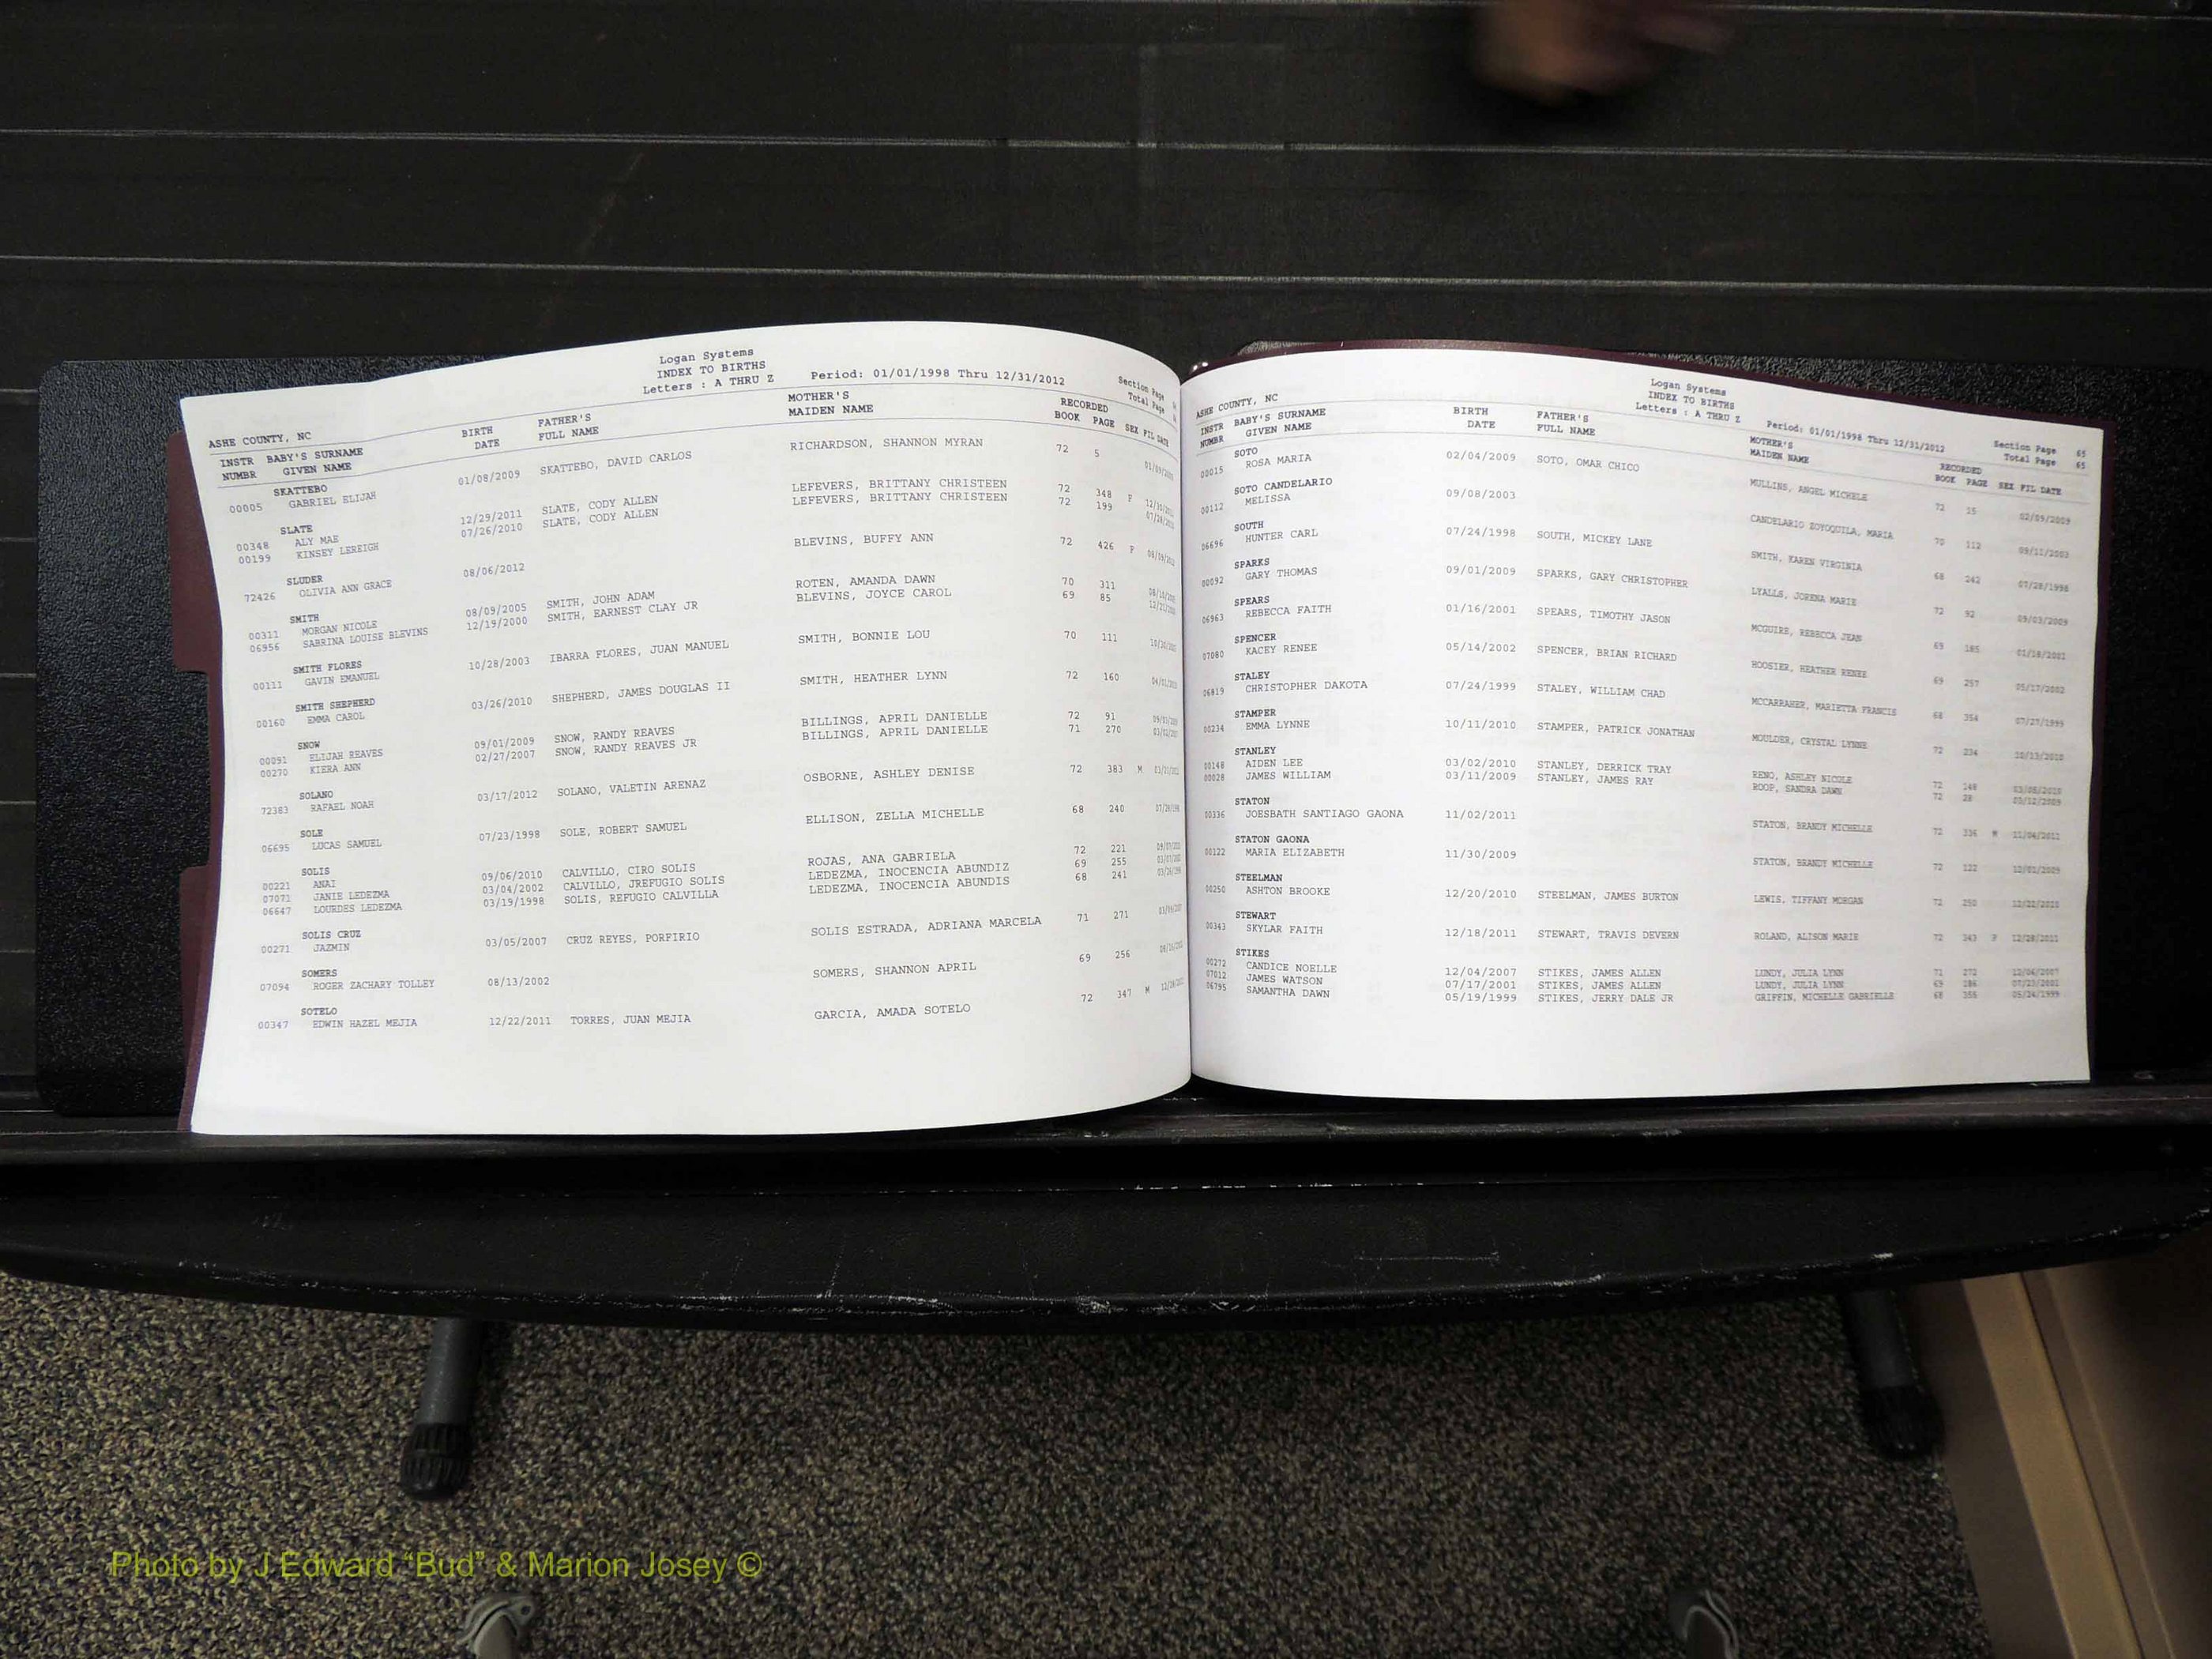 Logan Systems
INDEX TO BIRTHS
Letters : A THRU Z Period: 01/01/1998 Thru 12/31/2012 Section Page
Total Page
ASHE COUNTY, NC
INSTR BABY'S SURNAME BIRTH FATHER'S MOTHER'S RECORDED
NUMBR GIVEN NAME DATE FULL NAME MAIDEN NAME BOOK PAGE SEX FIL DATE
SKATTEBO
00005 GABRIEL ELIJAH 01/08/2009 SKATTEBO, DAVID CARLOS RICHARDSON, SHANNON MYRAN 72 5
SLATE
00348 ALY MAE 12/29/2011 SLATE, CODY ALLEN LEFEVERS, BRITTANY CHRISTEEN 72 348 F
00199 KINSEY LEREIGH 07/26/2010 SLATE, CODY ALLEN LEFEVERS, BRITTANY CHRISTEEN 72 199
SLUDER
72426 OLIVIA ANN GRACE 08/06/2012 BLEVINS, BUFFY ANN 72 426 F
SMITH
00311 MORGAN NICOLE 08/09/2005 SMITH, JOHN ADAM ROTEN, AMANDA DAWN 70 311
06956 SABRINA LOUISE BLEVINS 12/19/2000 SMITH, EARNEST CLAY JR BLEVINS, JOYCE CAROL 69 85
SMITH FLORES
00111 GAVIN EMANUEL 10/28/2003 IBARRA FLORES, JUAN MANUEL SMITH, BONNIE LOU 70 111
SMITH SHEPHERD
00160 EMMA CAROL 03/26/2010 SHEPHERD, JAMES DOUGLAS II SMITH, HEATHER LYNN 72 160
SNOW
00091 ELIJAH REAVES 09/01/2009 SNOW, RANDY REAVES BILLINGS, APRIL DANIELLE 72 91
00270 KIERA ANN 02/27/2007 SNOW, RANDY REAVES JR BILLINGS, APRIL DANIELLE 71 270
SOLANO
72383 RAFAEL NOAH 03/17/2012 SOLANO, VALETIN ARENAZ OSBORNE, ASHLEY DENISE 72 383 M
SOLE
06695 LUCAS SAMUEL 07/23/1998 SOLE, ROBERT SAMUEL ELLISON, ZELLA MICHELLE 68 240
SOLIS
00221 ANAI 09/06/2010 CALVILLO, CIRO SOLIS ROJAS, ANA GABRIELA 72 221
07071 JANIE LEDEZMA 03/04/2002 CALVILLO, JREFUGIO SOLIS LEDEZMA, INOCENCIA ABUNDIZ 69 255
06647 LOURDES LEDEZMA 03/19/1998 SOLIS, REFUGIO CALVILLA LEDEZMA, INOCENCIA ABUNDIS 68 241
SOLIS CRUZ
00271 JAZMIN 03/05/2007 CRUZ REYES, PORFIRIO SOLIS ESTRADA, ADRIANA MARCELA 71 271
SOMERS
07094 ROGER ZACHARY TOLLEY 08/13/2002 SOMERS, SHANNON APRIL 69 256
SOTELO
00347 EDWIN HAZEL MEJIA 12/22/2011 TORRES, JUAN MEJIA GARCIA, AMADA SOTELO 72 347 M
Logan Systems
INDEX TO BIRTHS
Letters : A THRU Z Period: 01/01/1998 Thru 12/31/2012 Section Page 65
Total Page 65
ASHE COUNTY, NC
INSTR BABY'S SURNAME BIRTH FATHER'S MOTHER'S RECORDED
NUMBR GIVEN NAME DATE FULL NAME MAIDEN NAME BOOK PAGE SEX FIL DATE
SOTO
00015 ROSA MARIA 02/04/2009 SOTO, OMAR CHICO MULLINS, ANGEL MICHELE 72 15 02/09/2009
SOTO CANDELARIO
00112 MELISSA 09/08/2003 CANDELARIO ZOYOQUILA, MARIA 70 112 09/11/2003
SOUTH
06696 HUNTER CARL 07/24/1998 SOUTH, MICKEY LANE SMITH, KAREN VIRGINIA 68 242 07/28/1998
SPARKS
00092 GARY THOMAS 09/01/2009 SPARKS, GARY CHRISTOPHER LYALLS, JORENA MARIE 72 92 09/03/2009
SPEARS
06963 REBECCA FAITH 01/16/2001 SPEARS, TIMOTHY JASON MCGUIRE, REBECCA JEAN 69 185 01/18/2001
SPENCER
07080 KACEY RENEE 05/14/2002 SPENCER, BRIAN RICHARD HOOSIER, HEATHER RENEE 69 257 05/17/2002
STALEY
06819 CHRISTOPHER DAKOTA 07/24/1999 STALEY, WILLIAM CHAD MCCARRAHER, MARIETTA FRANCIS 68 354 07/27/1999
STAMPER
00234 EMMA LYNNE 10/11/2010 STAMPER, PATRICK JONATHAN MOULDER, CRYSTAL LYNNE 72 234 10/13/2010
STANLEY
00148 AIDEN LEE 03/02/2010 STANLEY, DERRICK TRAY RENO, ASHLEY NICOLE 72 148
00028 JAMES WILLIAM 03/11/2009 STANLEY, JAMES RAY ROOP, SANDRA DAWN 72 28 03/12/2009
STATON
00336 JOESBATH SANTIAGO GAONA 11/02/2011 STATON, BRANDY MICHELLE 72 336 M 11/04/2011
STATON GAONA
00122 MARIA ELIZABETH 11/30/2009 STATON, BRANDY MICHELLE 72 122 12/02/2009
STEELMAN
00250 ASHTON BROOKE 12/20/2010 STEELMAN, JAMES BURTON LEWIS, TIFFANY MORGAN 72 250 12/22/2010
STEWART
00343 SKYLAR FAITH 12/18/2011 STEWART, TRAVIS DEVERN ROLAND, ALISON MARIE 72 343 F 12/28/2011
STIKES
00272 CANDICE NOELLE 12/04/2007 STIKES, JAMES ALLEN LUNDY, JULIA LYNN 71 272 12/06/2007
07012 JAMES WATSON 07/17/2001 STIKES, JAMES ALLEN LUNDY, JULIA LYNN 69 186 07/23/2001
06795 SAMANTHA DAWN 05/19/1999 STIKES, JERRY DALE JR GRIFFIN, MICHELLE GABRIELLE 68 355 05/24/1999
Photo by J Edward “Bud” & Marion Josey ©